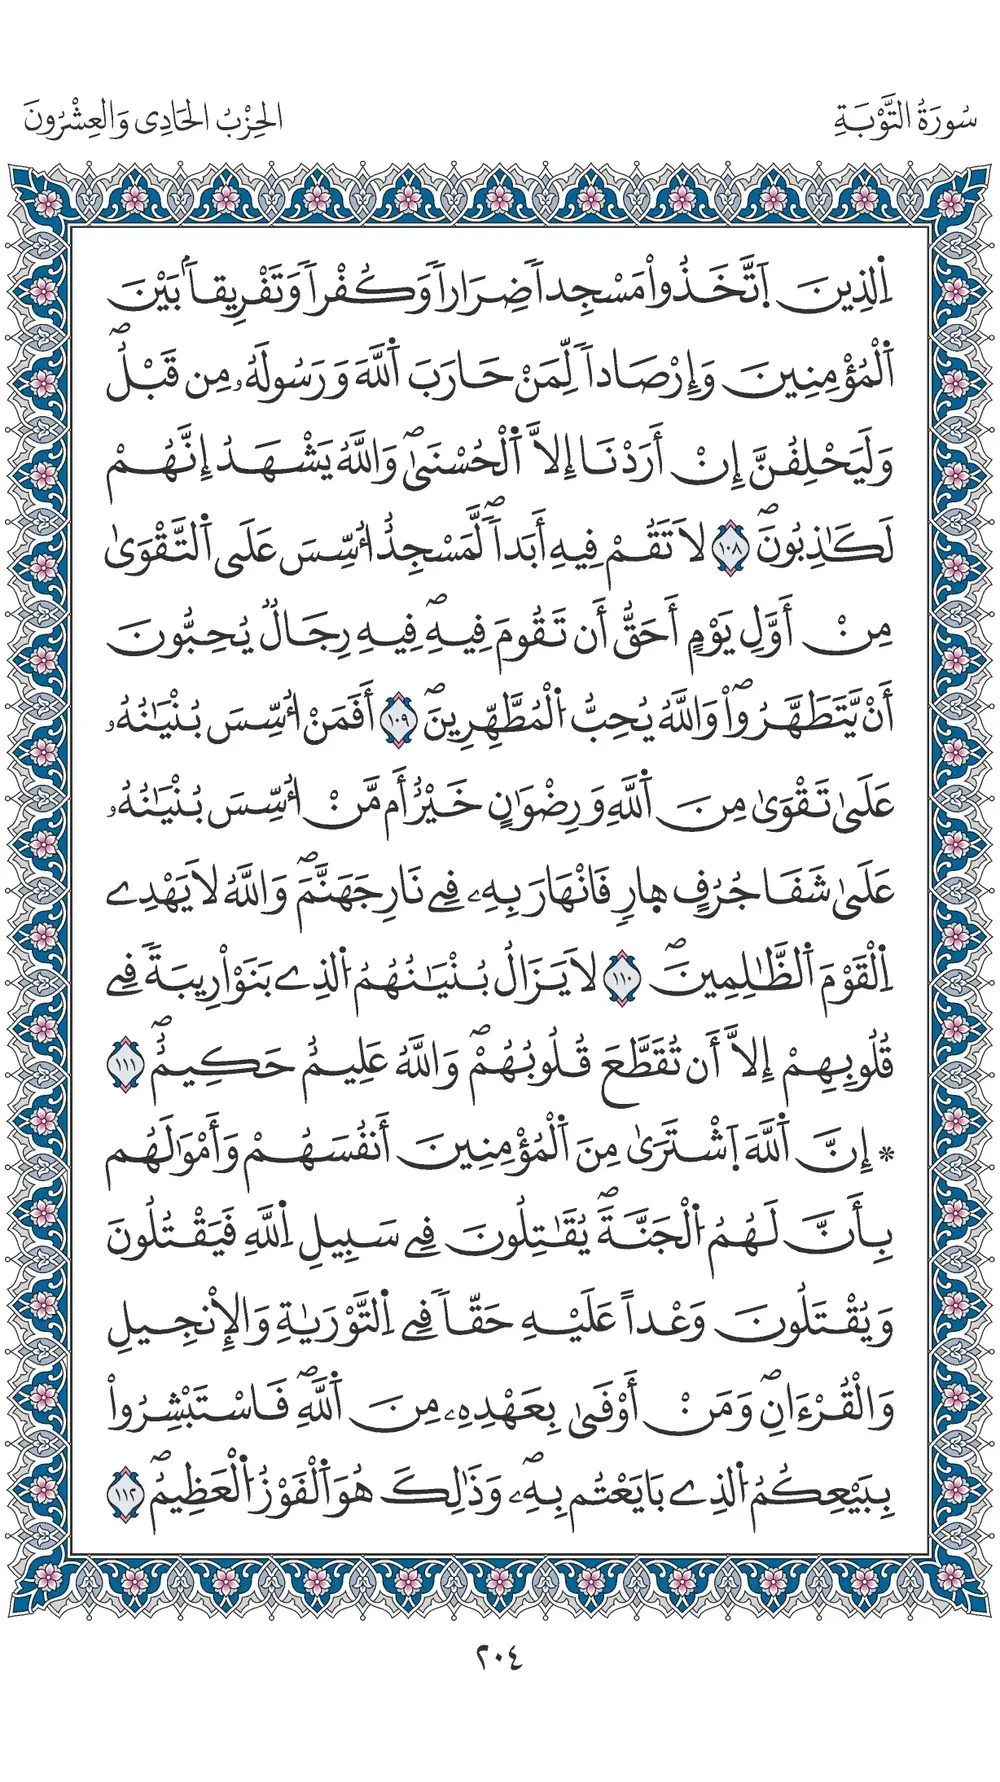 سُورَةُ التَّوْبَةِ
الحِزْبُ الحَادِى وَالعِشْرُونَ
اَ۬لذِينَ اَ۪تَّخَذُواْ مَسْجِداٗ ضِرَاراٗ وَكُفْراٗ وَتَفْرِيقاَۢ بَيْنَ
اَ۬لْمُؤْمِنِينَ وَإِرْصَاداٗ لِّمَنْ حَارَبَ اَ۬للَّهَ وَرَسُولَهُۥ مِن قَبْلُۖ
وَلَيَحْلِفُنَّ إِنْ أَرَدْنَا إِلاَّ اَ۬لْحُسْنَىٰۖ وَاللَّهُ يَشْهَدُ إِنَّهُمْ
لَكَٰذِبُونَۖ ١٠٨ لَا تَقُمْ فِيهِ أَبَداٗۖ لَّمَسْجِدٌ ا۟سِّسَ عَلَى اَ۬لتَّقْوَىٰ
مِنْ أَوَّلِ يَوْمٍ أَحَقُّ أَن تَقُومَ فِيهِۖ فِيهِ رِجَالٞ يُحِبُّونَ
أَنْ يَّتَطَهَّرُواْۖ وَاللَّهُ يُحِبُّ اُ۬لْمُطَّهِّرِينَۖ ١٠٩ أَفَمَنْ ا۟سِّسَ بُنْيَٰنُهُۥ
عَلَىٰ تَقْوَىٰ مِنَ اَ۬للَّهِ وَرِضْوَٰنٍ خَيْرٌ أَم مَّنْ ا۟سِّسَ بُنْيَٰنُهُۥ
عَلَىٰ شَفَا جُرُفٍ هِارٖ فَانْهَارَ بِهِۦ فِے نَارِ جَهَنَّمَۖ وَاللَّهُ لَا يَهْدِے
اِ۬لْقَوْمَ اَ۬لظَّٰلِمِينَۖ ١١٠ لَا يَزَالُ بُنْيَٰنُهُمُ اُ۬لذِے بَنَوْاْ رِيبَةٗ فِے
قُلُوبِهِمْ إِلاَّ أَن تُقَطَّعَ قُلُوبُهُمْۖ وَاللَّهُ عَلِيمٌ حَكِيمٌۖ ١١١
* إِنَّ اَ۬للَّهَ اَ۪شْتَرَىٰ مِنَ اَ۬لْمُؤْمِنِينَ أَنفُسَهُمْ وَأَمْوَٰلَهُم
بِأَنَّ لَهُمُ اُ۬لْجَنَّةَۖ يُقَٰتِلُونَ فِے سَبِيلِ اِ۬للَّهِ فَيَقْتُلُونَ
وَيُقْتَلُونَ وَعْداً عَلَيْهِ حَقّاٗ فِے اِ۬لتَّوْرَيٰةِ وَالْإِنْجِيلِ
وَالْقُرْءَانِۖ وَمَنْ أَوْفَىٰ بِعَهْدِهِۦ مِنَ اَ۬للَّهِۖ فَاسْتَبْشِرُواْ
بِبَيْعِكُمُ اُ۬لذِے بَايَعْتُم بِهِۦۖ وَذَٰلِكَ هُوَ اَ۬لْفَوْزُ اُ۬لْعَظِيمُۖ ١١٢
٢٠٤